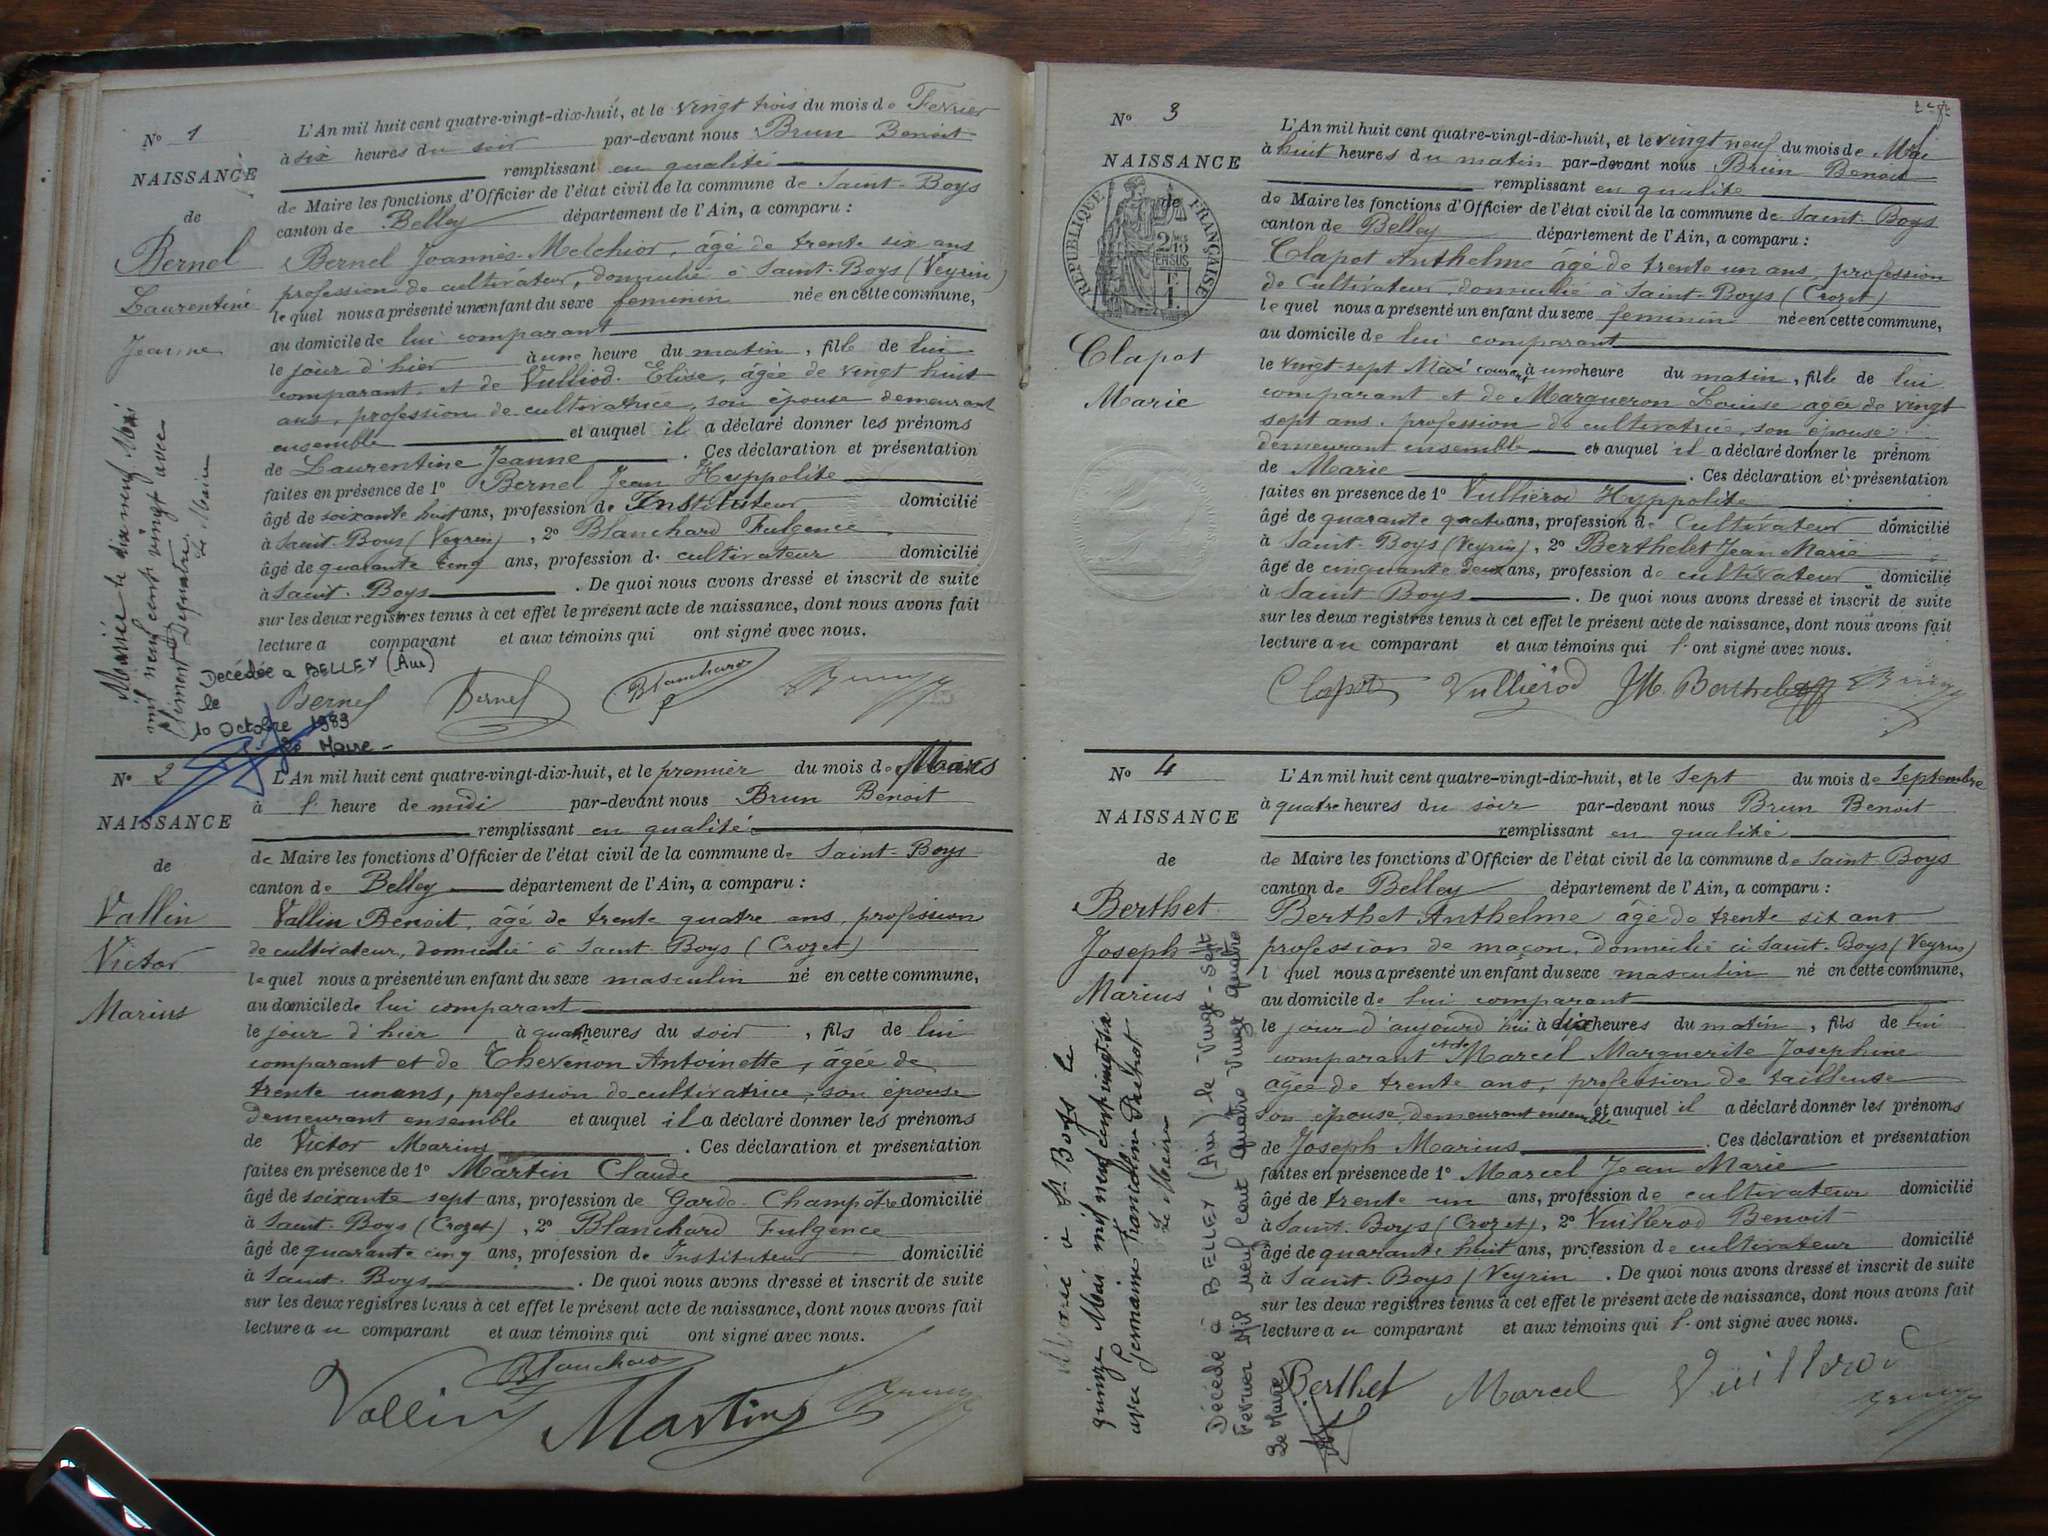 N° 1
NAISSANCE
de
Bernel
Laurentine
Jeanne
L'An mil huit cent quatre-vingt-dix-huit, et le vingt trois du mois de Fevrier
à six heures du soir par-devant nous Brun Benoit
remplissant en qualité
de Maire les fonctions d'Officier de l'état civil de la commune de Saint-Boys
canton de Belley département de l'Ain, a comparu :
Bernel Joannès-Melchior, âgé de trente six ans
profession de cultivateur, domicilié à Saint-Boys (Veyrin)
lequel nous a présenté un enfant du sexe feminin née en cette commune,
au domicile de lui comparant
le jour d'hier à une heure du matin, fille de lui
comparant, et de Vulliod Elise, âgée de vingt huit
ans, profession de cultivatrice, son épouse demeurant
ensemble et auquel il a déclaré donner les prénoms
de Laurentine Jeanne . Ces déclaration et présentation
faites en présence de 1° Bernel Jean Hyppolite
âgé de soixante huit ans, profession de Instituteur domicilié
à Saint-Boys (Veyrin), 2° Blanchard Fulgence
âgé de quarante cinq ans, profession de cultivateur domicilié
à Saint-Boys . De quoi nous avons dressé et inscrit de suite
sur les deux registres tenus à cet effet le présent acte de naissance, dont nous avons fait
lecture a comparant et aux témoins qui ont signé avec nous.
Mariée le dix neuf Mai
mil neuf cent vingt avec
Le Maire
Decédée a BELLEY (Ain)
le
10 Octobre 1989
Le Maire
Bernel Bernel Blanchard Brun
N° 2
NAISSANCE
de
Vallin
Victor
Marius
L'An mil huit cent quatre-vingt-dix-huit, et le premier du mois de Mars
à l' heure de midi par-devant nous Brun Benoit
remplissant en qualité
de Maire les fonctions d'Officier de l'état civil de la commune de Saint-Boys
canton de Belley département de l'Ain, a comparu :
Vallin Benoit, âgé de trente quatre ans, profession
de cultivateur, domicilié à Saint-Boys (Crozet)
lequel nous a présenté un enfant du sexe masculin né en cette commune,
au domicile de lui comparant
le jour d'hier à quatre heures du soir, fils de lui
comparant et de Thevenon Antoinette, âgée de
trente un ans, profession de cultivatrice, son épouse
demeurant ensemble et auquel il a déclaré donner les prénoms
de Victor Marius . Ces déclaration et présentation
faites en présence de 1° Martin Claude
âgé de soixante sept ans, profession de Garde-Champêtre domicilié
à Saint-Boys (Crozet), 2° Blanchard Fulgence
âgé de quarante cinq ans, profession de Instituteur domicilié
à Saint-Boys . De quoi nous avons dressé et inscrit de suite
sur les deux registres tenus à cet effet le présent acte de naissance, dont nous avons fait
lecture au comparant et aux témoins qui ont signé avec nous.
Blanchard
Vallin Martin Brun
N° 3
NAISSANCE
de
REPUBLIQUE FRANÇAISE
Clapot
Marie
L'An mil huit cent quatre-vingt-dix-huit, et le vingt neuf du mois de Mai
à huit heures du matin par-devant nous Brun Benoit
remplissant en qualité
de Maire les fonctions d'Officier de l'état civil de la commune de Saint-Boys
canton de Belley département de l'Ain, a comparu :
Clapot Anthelme âgé de trente un ans, profession
de Cultivateur, domicilié à Saint-Boys (Crozet)
lequel nous a présenté un enfant du sexe feminin née en cette commune,
au domicile de lui comparant
le vingt-sept Mai courant à une heure du matin, fille de lui
comparant et de Margueron Louise agée de vingt
sept ans, profession de cultivatrice, son épouse
demeurant ensemble et auquel il a déclaré donner le prénom
de Marie . Ces déclaration et présentation
faites en présence de 1° Vulliérod Hyppolite
âgé de quarante quatre ans, profession de Cultivateur domicilié
à Saint-Boys (Veyrin), 2° Berthelet Jean Marie
âgé de cinquante deux ans, profession de cultivateur domicilié
à Saint Boys . De quoi nous avons dressé et inscrit de suite
sur les deux registres tenus à cet effet le présent acte de naissance, dont nous avons fait
lecture au comparant et aux témoins qui l'ont signé avec nous.
Clapot Vulliérod JM. Berthelet Brun
N° 4
NAISSANCE
de
Berthet
Joseph
Marius
L'An mil huit cent quatre-vingt-dix-huit, et le Sept du mois de Septembre
à quatre heures du soir par-devant nous Brun Benoit
remplissant en qualité
de Maire les fonctions d'Officier de l'état civil de la commune de Saint-Boys
canton de Belley département de l'Ain, a comparu :
Berthet Anthelme âgé de trente six ans
profession de maçon, domicilié à Saint-Boys (Veyrin)
l quel nous a présenté un enfant du sexe masculin né en cette commune,
au domicile de lui comparant
le jour d'aujourd'hui à dix heures du matin, fils de lui
comparant et de Marcel Marguerite Josephine
âgée de trente ans, profession de tailleuse
son épouse, demeurant ensemble et auquel il a déclaré donner les prénoms
de Joseph Marius . Ces déclaration et présentation
faites en présence de 1° Marcel Jean Marie
âgé de trente un ans, profession de cultivateur domicilié
à Saint-Boys (Crozet), 2° Vuillerod Benoit
âgé de quarante huit ans, profession de cultivateur domicilié
à Saint-Boys (Veyrin . De quoi nous avons dressé et inscrit de suite
sur les deux registres tenus à cet effet le présent acte de naissance, dont nous avons fait
lecture au comparant et aux témoins qui l'ont signé avec nous.
Marié à St Boys le
quinze Mai mil neuf cent
avec Germaine Francoline
Le Maire
Décédé à BELLEY (Ain) le Vingt-Sept
Fevrier Mil neuf cent quatre vingt quatre
Le Maire
Berthet Marcel Vuillerod Brun